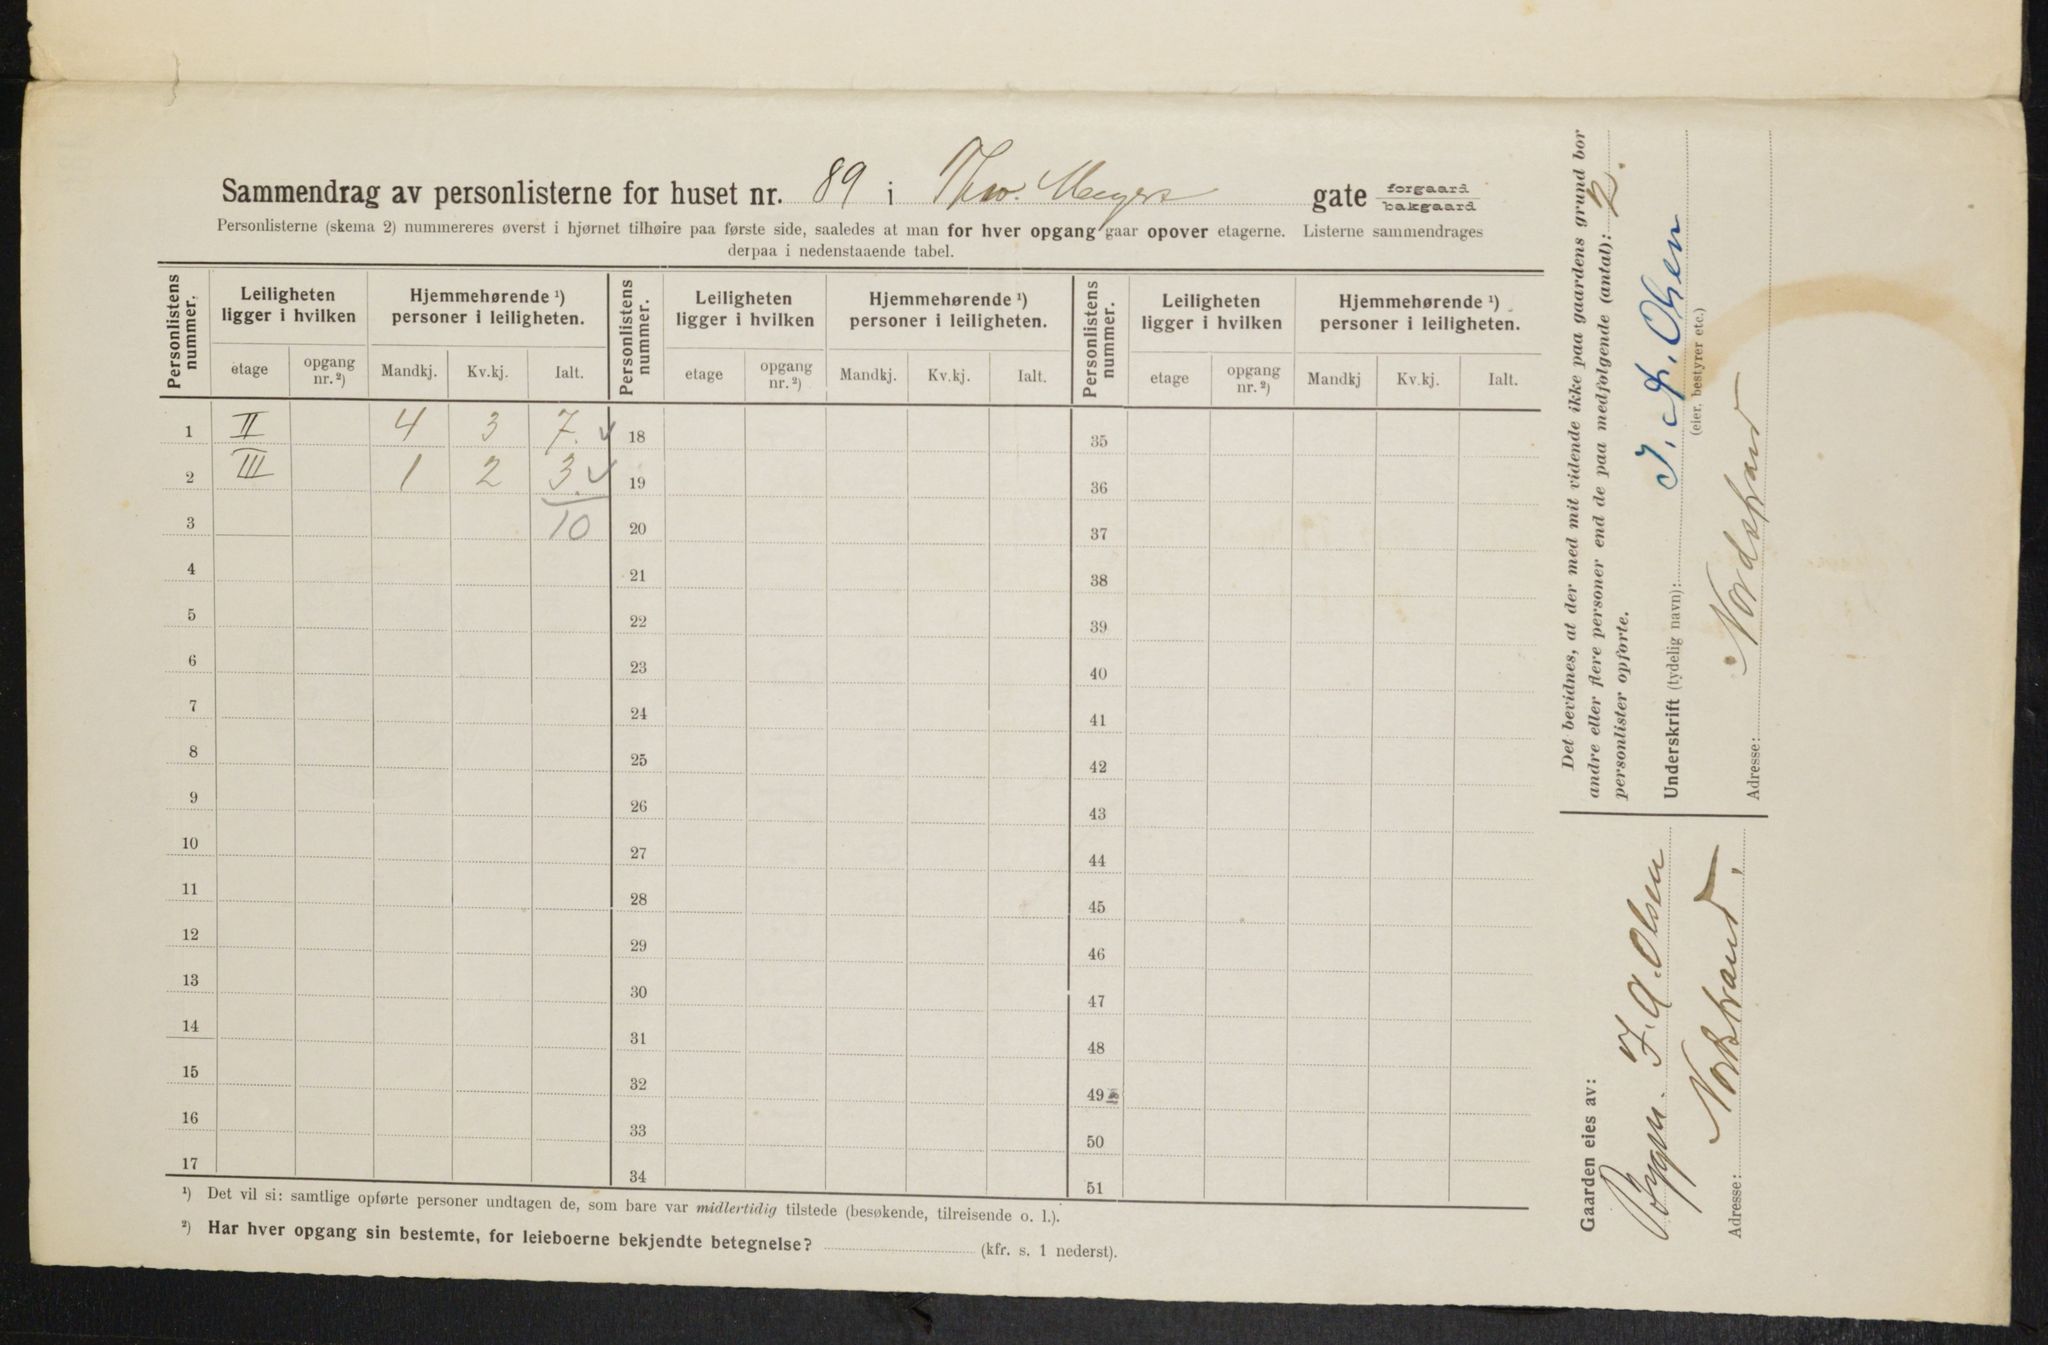 Sammendrag av personlisterne for huset nr. 89 i Thv. Meyers gate forgaard bakgaard
Personlisterne (skema 2) nummereres øverst i hjørnet tilhøire paa første side, saaledes at man for hver opgang gaar opover etagerne. Listerne sammendrages
derpaa i nedenstaaende tabel.
Personlistens nummer. Leiligheten ligger i hvilken Hjemmehørende ¹) personer i leiligheten. Personlistens nummer. Leiligheten ligger i hvilken Hjemmehørende ¹) personer i leiligheten. Personlistens nummer. Leiligheten ligger i hvilken Hjemmehørende ¹) personer i leiligheten.
etage opgang nr. ²) Mandkj. Kv.kj. Ialt. etage opgang nr. ²) Mandkj. Kv.kj. Ialt. etage opgang nr. ²) Mandkj Kv.kj. Ialt.
1 II 4 3 7. 18 35
2 III 1 2 3. 19 36
3 10 20 37
4 21 38
5 22 39
6 23 40
7 24 41
8 25 42
9 26 43
10 27 44
11 28 45
12 29 46
13 30 47
14 31 48
15 32 49
16 33 50
17 34 51
¹) Det vil si: samtlige opførte personer undtagen de, som bare var midlertidig tilstede (besøkende, tilreisende o. l.).
²) Har hver opgang sin bestemte, for leieboerne bekjendte betegnelse? (kfr. s. 1 nederst).
Det bevidnes, at der med mit vidende ikke paa gaardens grund bor
andre eller flere personer end de paa medfølgende (antal): 2.
personlister opførte.
Underskrift (tydelig navn): J. A. Olsen
(eier, bestyrer etc.)
Adresse: Nordstrand
Gaarden eies av:
J. A. Olsen
Adresse: Nordstrand.